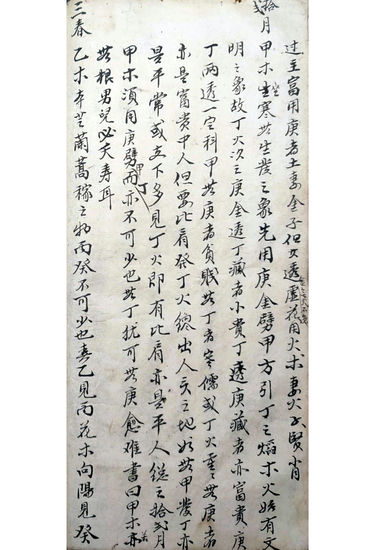 过主富用庚者土妻金子但文透虛花用火木妻火子賢肖
拾弍月甲木坐寒無生發之象先用庚金劈甲方引丁之熖木火始有文
明之象故丁火次之庚金透丁藏者小貴丁透庚藏者亦富貴庚
丁兩透一定科甲無庚者貧賤無丁者寒儒或丁火重重無庚者
亦是富貴中人但要比肩癸丁火總出人头之地如無甲發丁亦
是平常或支下多見丁火即有比肩亦是平人總之拾弍月
甲木須用庚劈甲丁而亦不可少也無丁犹可無庚愈难書曰甲木亦
無根男兒必夭寿耳
三春 乙木本芝蘭蒿稼之物丙癸不可少也喜乙見丙花木向陽見癸